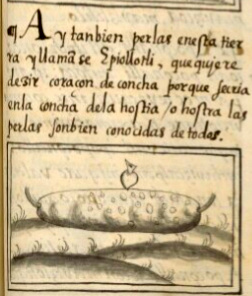 ¶ Ay tanbien perlas enesta tier
ra y llamāse Epiollotli, que quiere
dezir coraçon de concha porque secria
enla concha dela hostia / o hostra las
perlas sonbien conocidas de todos.